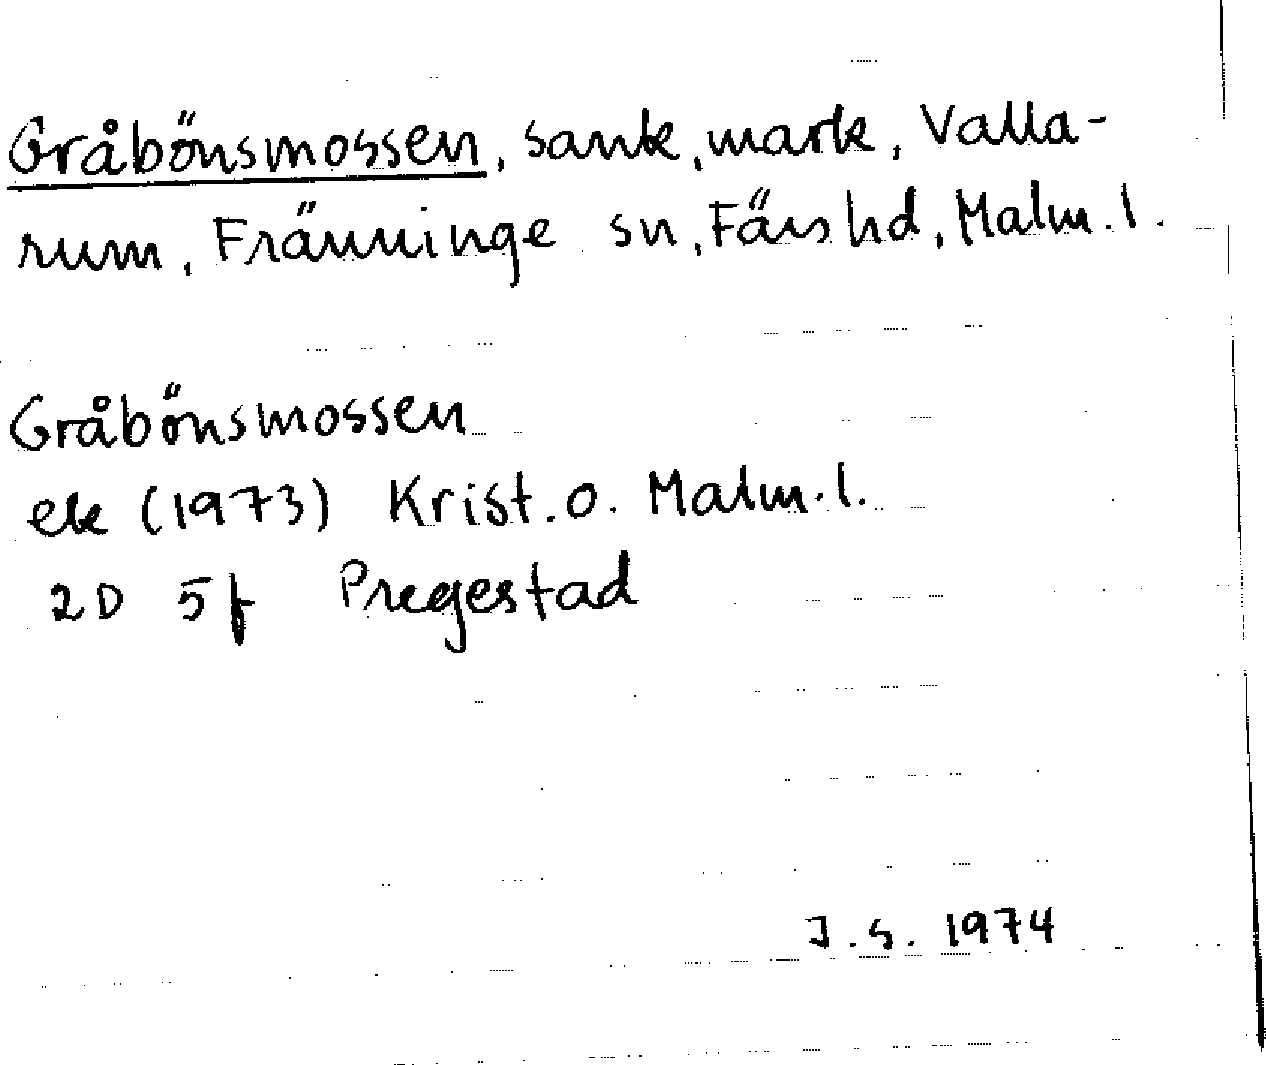 Gråbönsmossen, sank, mark, Valla-
rum, Fränninge sn, Färs hd, Malm. l.
Gråbönsmossen
ek (1973) Krist. o. Malm. l.
2D 5f Pregestad
J. S. 1974